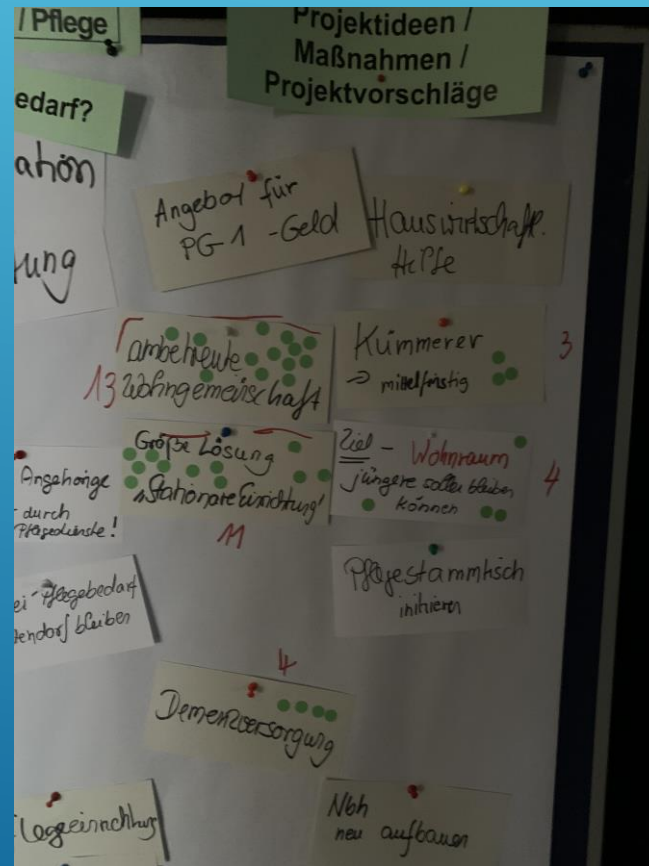 / Pflege
edarf?
Projektideen /
Maßnahmen /
Projektvorschläge
ation
tung
Angebot für
PG 1 - Geld
Hauswirtschaft.
Hilfe
ambetreute
13 Wohngemeinschaft
Kümmerer
→ mittelfristig
3
Große Lösung
"Stationäre Einrichtung"
11
Ziel - Wohnraum
jüngere sollen bleiben
können
4
Angehörige
durch
Pflegedienste!
ei Pflegebedarf
tendorf bleiben
Pflegestammtisch
initiieren
4
Demenzversorgung
flegeeinrichtung
Nbh
neu aufbauen